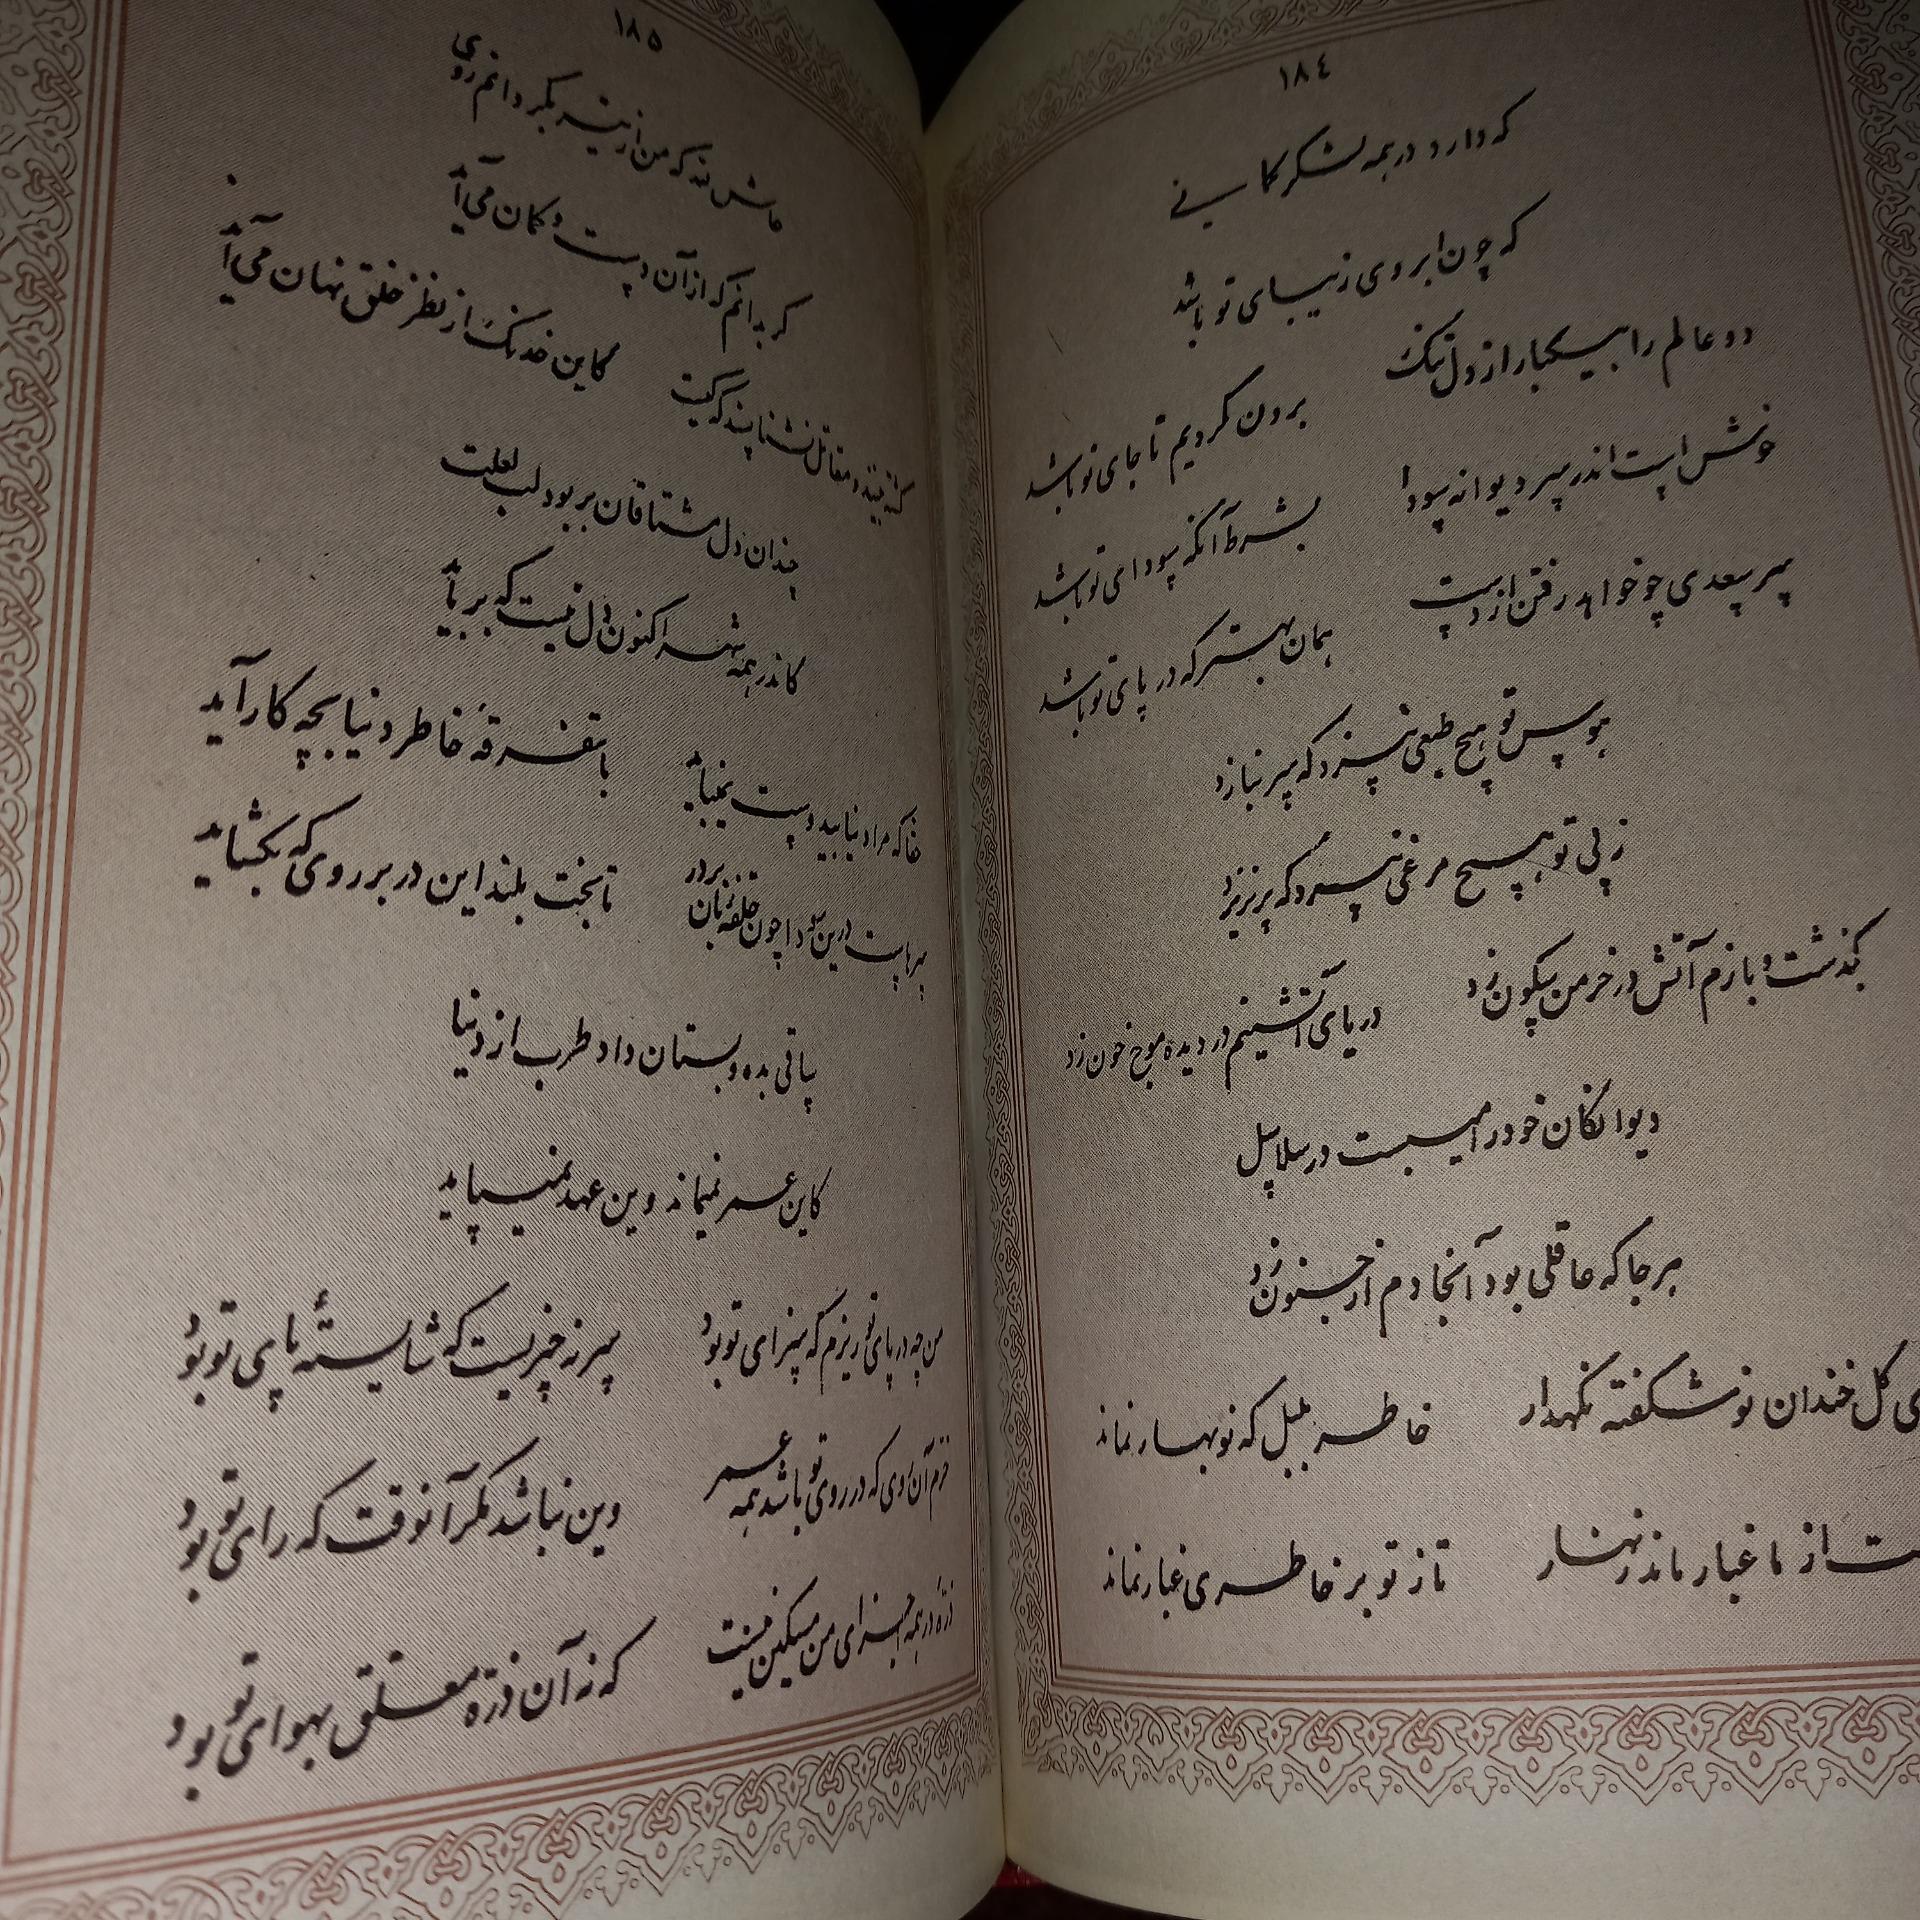 ۱۸۴
که دارد در همه لشکر کمانی
که چون ابروی زیبای تو باشد
دو عالم را بیکبار از دل تنگ
برون کردیم تا جای تو باشد
خوش است اندر سر دیوانه سودا
بشرط آنکه سودای تو باشد
سر سعدی چو خواهد رفتن از دست
همان بهتر که در پای تو باشد
هوس تو هیچ طبعی نپزد که سر نبازد
ز پی تو هیچ مرغی نپرد که پر نریزد
بگذشت و بازم آتش در خرمن سکون زد
دریای آتشینم در دیده موج خون زد
دیوانگان خود را میبست در سلاسل
هر جا که عاقلی بود آنجا دم از جنون زد
ی گل خندان نوشکفته نگهدار
خاطر بلبل که نوبهار نماند
ت از ما غبار ماند زنهار
تا ز تو بر خاطری غبار نماند
۱۸۵
حاش لله که من از تیر بگردانم روی
گر بدانم که از آن دست و کمان می‌آید
کشته بینند و مقاتل نشناسند که کیست
کاین خدنگ از نظر خلق نهان می‌آید
چندان دل مشتاقان بربود لب لعلت
کاندر همه شهر اکنون دل نیست که برباید
غافل مراد
با تفرقهٔ خاطر دنیا بچه کار آید
سرهاست درین سودا چون حلقه زنان بر در
تا بخت بلند این در بر روی که بگشاید
ساقی بده و بستان داد طرب از دنیا
کاین عمر نمیماند وین عهد نمیپاید
من چه در پای تو ریزم که سزای تو بود
سر نه چیزیست که شایستهٔ پای تو بود
خرم آن روی که در روی تو باشد همه عمر
وین نباشد مگر آنوقت که رای تو بود
ذره‌ای در همه اجزای من مسکین نیست
که نه آن ذره معلق بهوای تو بود